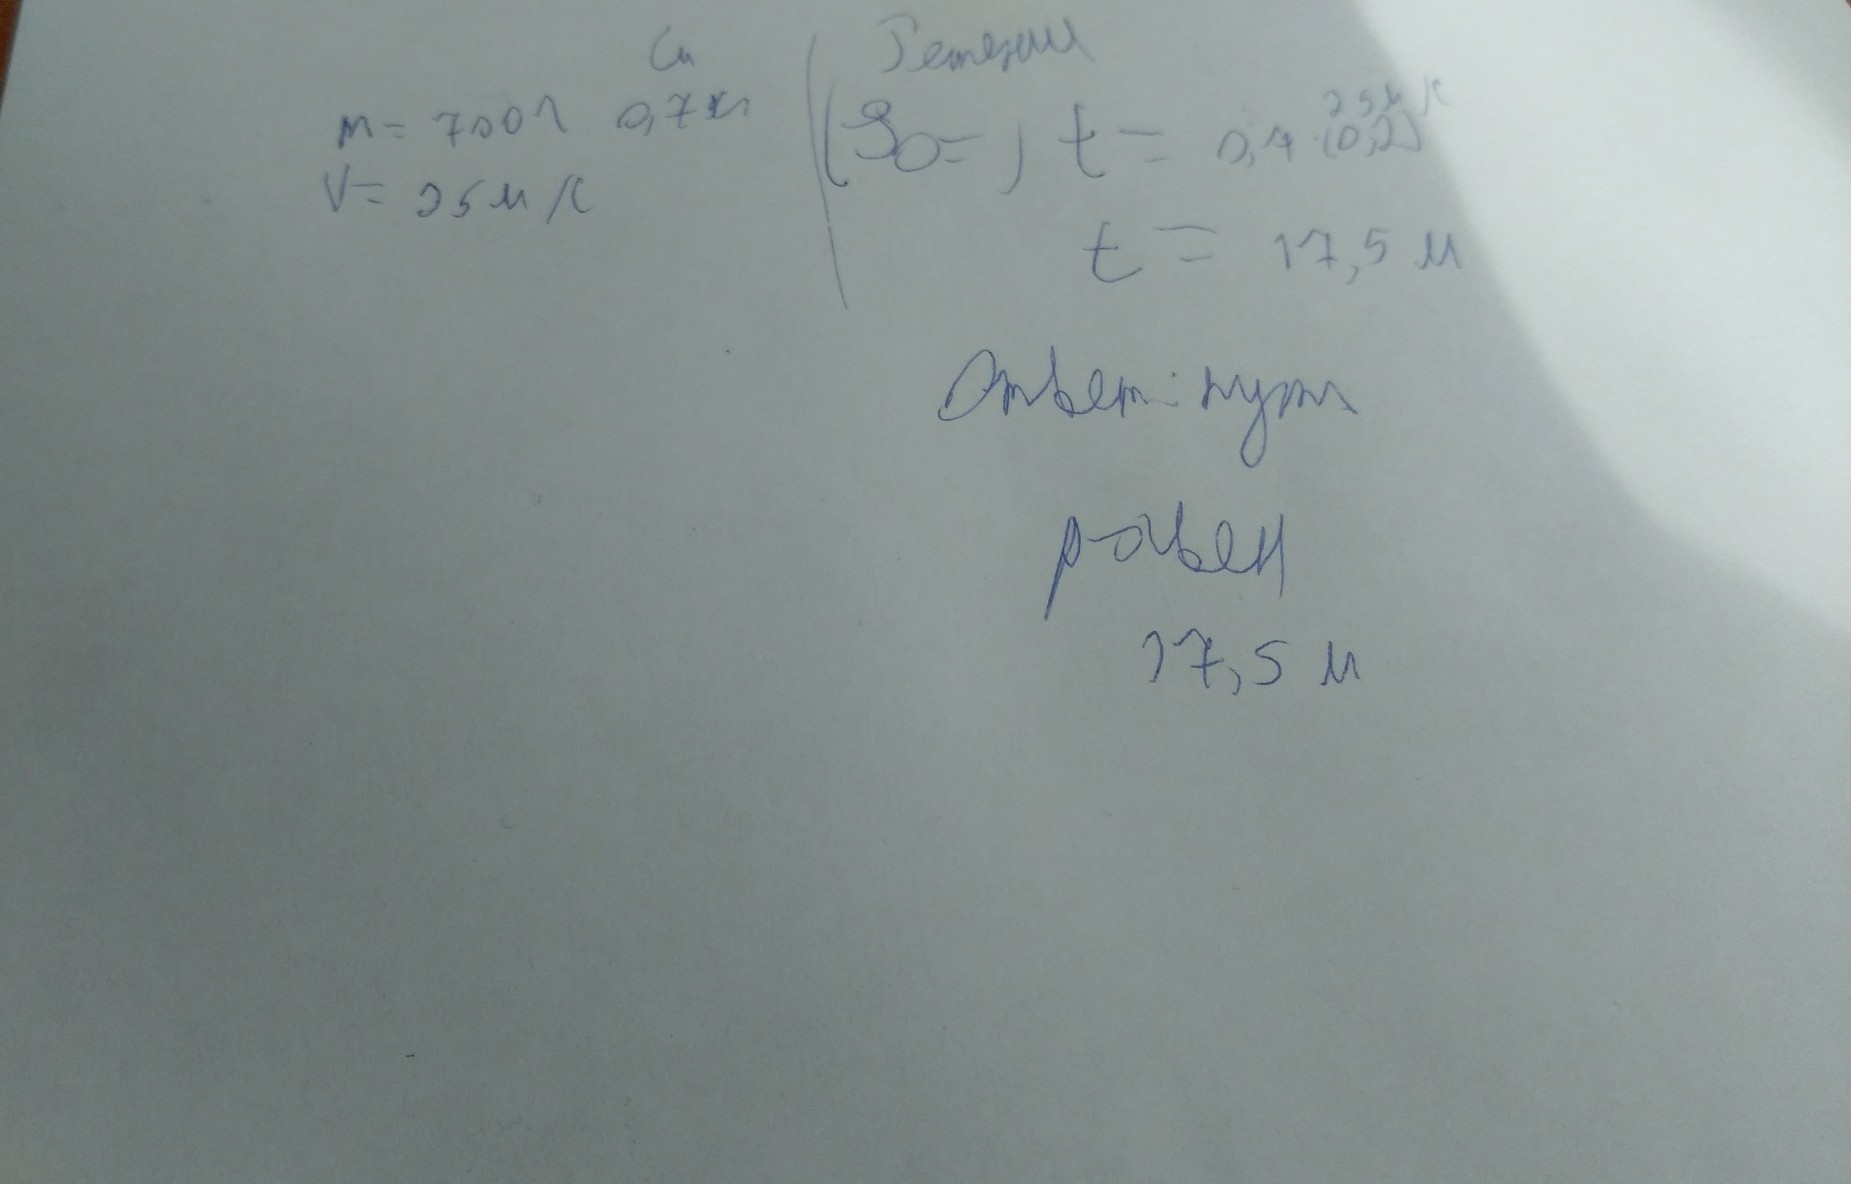 Си
Решение
m = 700г 0,7кг
V = 25 м/с
(S0= ) t = 0,7 · (0,2) 25м/с
t = 17,5 м
Ответ: путь
равен
17,5 м